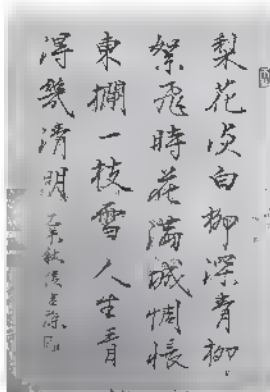 梨花淡白柳深青柳
絮飛時花滿城惆悵
東欄一枝雪人生看
得幾清明